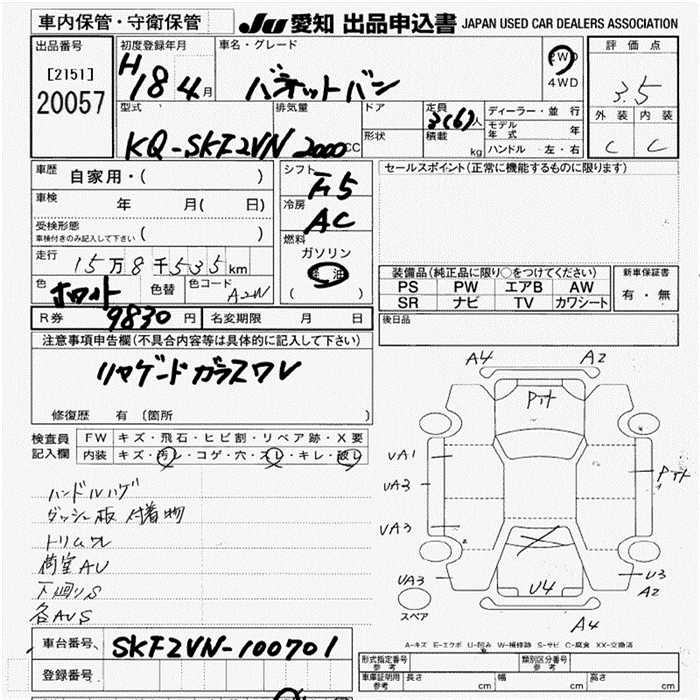 車内保管・守衛保管
JU 愛知 出品申込書 JAPAN USED CAR DEALERS ASSOCIATION
出品番号
[2151]
20057
初度登録年月
H18 4月
車名・グレード
バネットバン
2WD
4WD
評価点
3.5
外装 内装
C C
型式
KQ-SKF2VN
排気量
2000cc
ドア
形状
定員
3(6)人
積載
kg
ディーラー・並行
モデル年式 年
ハンドル 左・右
車歴
自家用・( )
車検
年 月( 日)
受検形態
車検付きのみ記入して下さい ( )
走行
15万8千535km
色
ホワイト
色替
色コード
A2W
シフト
F5
冷房
AC
燃料
ガソリン
軽油
( )
セールスポイント(正常に機能するものに限ります)
装備品(純正品に限り○をつけてください)
PS PW エアB AW
SR ナビ TV カワシート
新車保証書
有・無
R券 9830円
名変期限 月 日
後日品
注意事項申告欄(不具合内容等は具体的に記入して下さい)
リヤゲートガラスワレ
修復歴 有 (箇所 )
検査員記入欄
FW キズ・飛石・ヒビ割・リペア跡・X要
内装 キズ・汚レ・コゲ・穴・スレ・キレ・破レ
ハンドルハゲ
ダッシュ板 付着物
トリムワレ
荷室AU
下廻りS
各AUS
A4 A2
Pサ
UA1
UA3
UA3
UA3
Pサ
U4
U3
A2
A4
スペア
A-キズ E-エクボ U-凹み W-補修跡 S-サビ C-腐食 XX-交換済
車台番号
SKF2VN-100701
登録番号
形式指定番号
参考
類別区分番号
参考
車庫証明用
参考
長さ cm 幅 cm 高さ cm